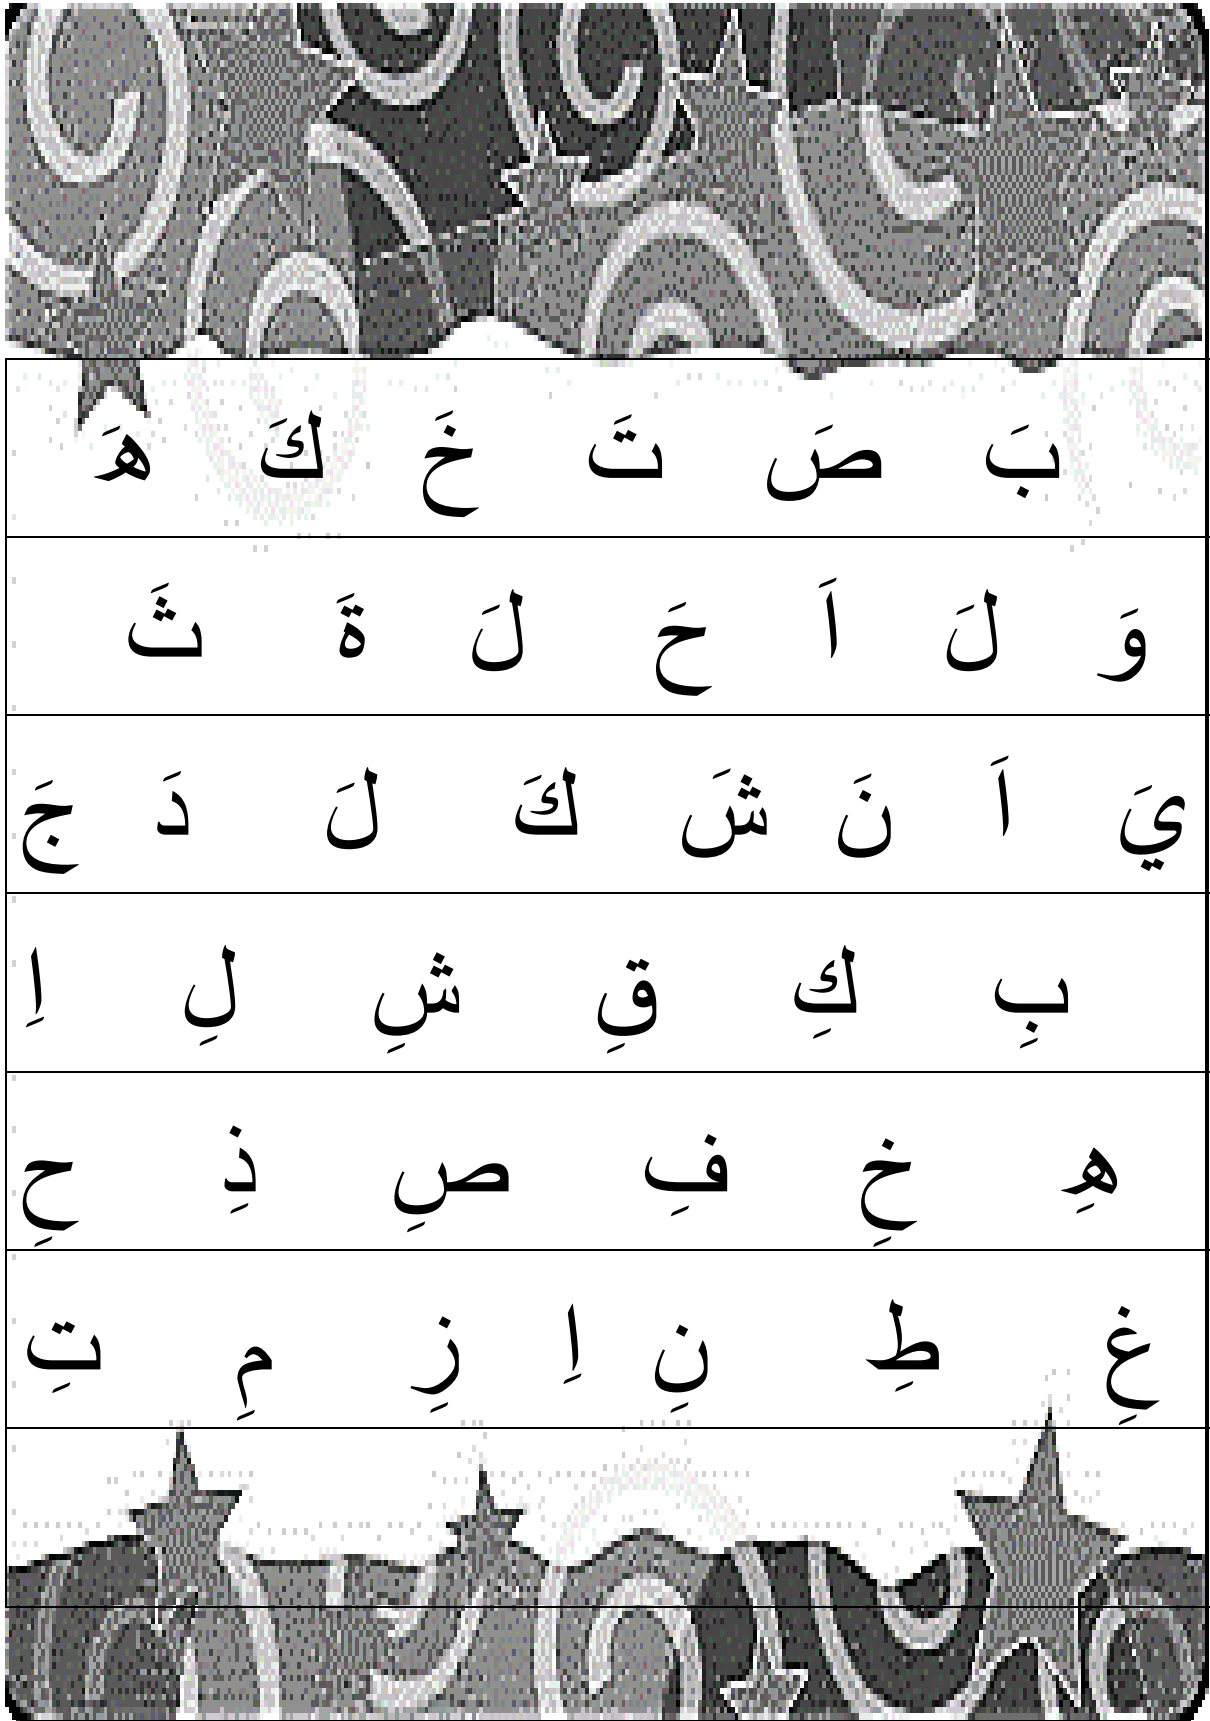 بَ صَ تَ خَ كَ هَ
وَ لَ اَ حَ لَ ةَ ثَ
يَ اَ نَ شَ كَ لَ دَ جَ
بِ كِ قِ شِ لِ اِ
هِ خِ فِ صِ ذِ حِ
غِ طِ نِ اِ زِ مِ تِ